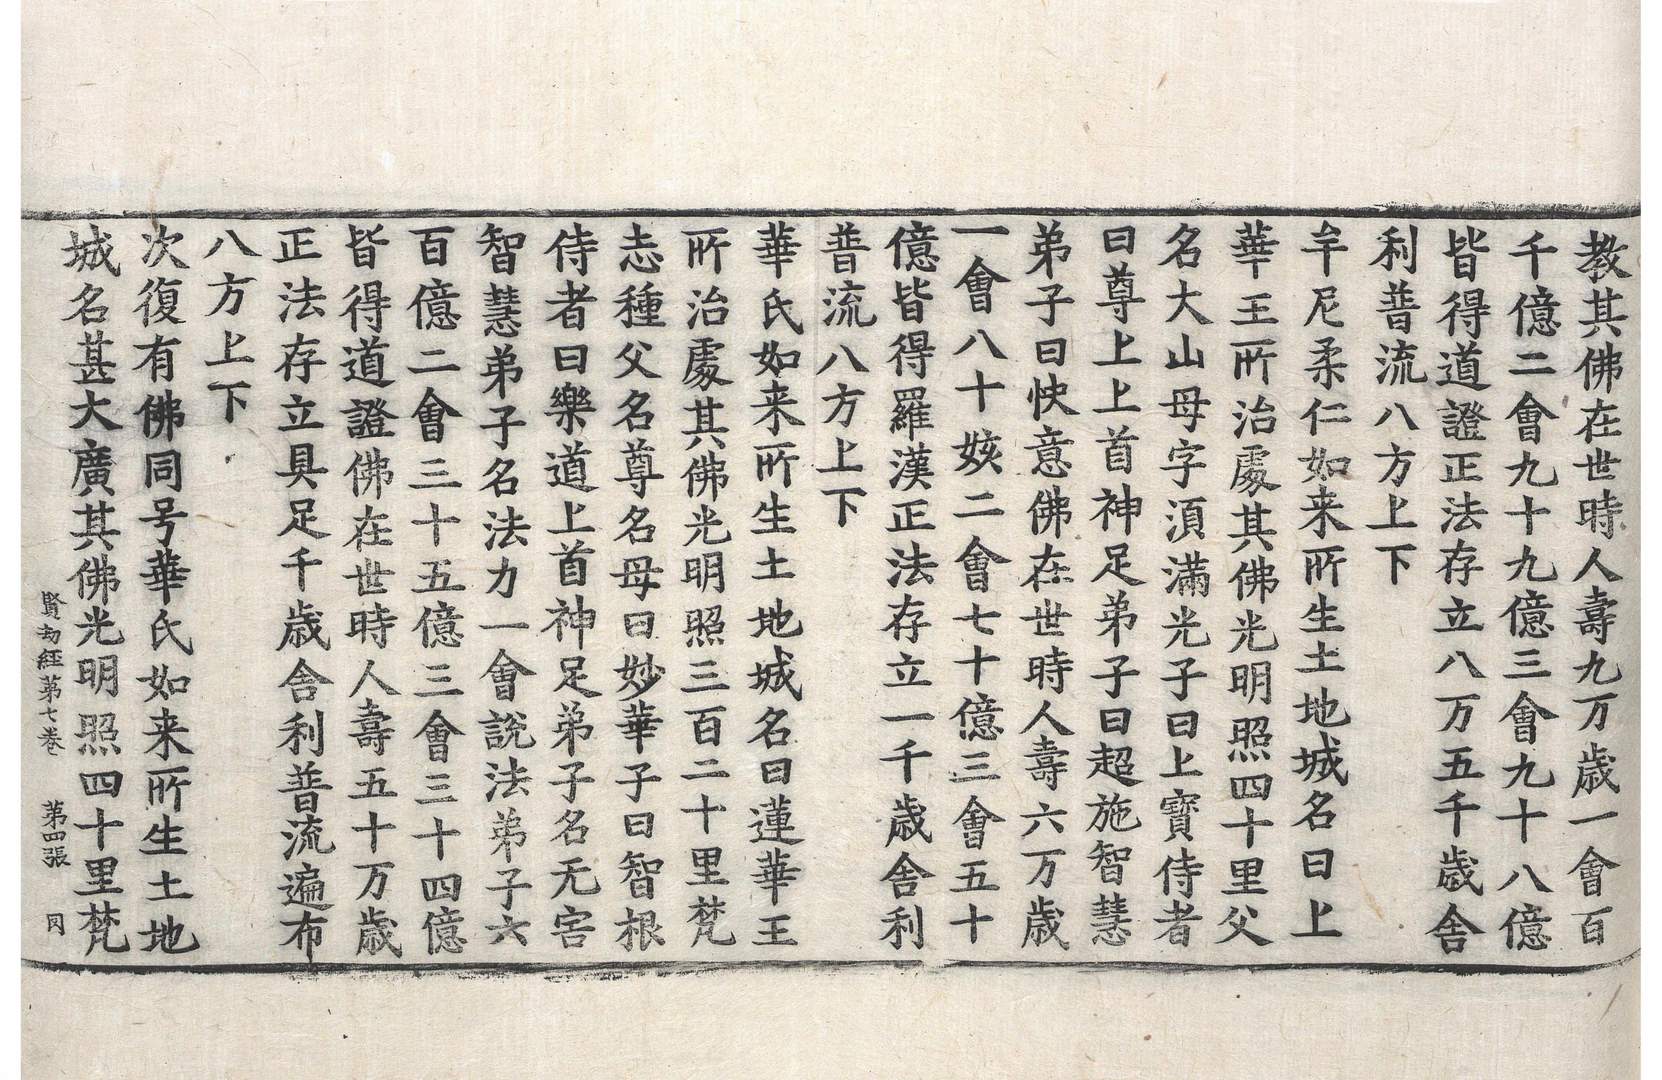 教其佛在世時人壽九万歳一會百
千億二會九十九億三會九十八億
皆得道證正法存立八万五千歳舎
利普流八方上下
牟尼柔仁如来所生土地城名曰上
華王所治處其佛光明照四十里父
名大山母字湏滿光子曰上寶侍者
曰尊上上首神足弟子曰超施智慧
弟子曰快意佛在世時人壽六万歳
一會八十姟二會七十億三會五十
億皆得羅漢正法存立一千歳舎利
普流八方上下
華氏如来所生土地城名曰蓮華王
所治處其佛光明照三百二十里梵
志種父名尊名母曰妙華子曰智根
侍者曰樂道上首神足弟子名无害
智慧弟子名法力一會說法弟子六
百億二會三十五億三會三十四億
皆得道證佛在世時人壽五十万歳
正法存立具足千歳舎利普流遍布
八方上下
次復有佛同号華氏如来所生土地
城名甚大廣其佛光明照四十里梵
賢劫經第七卷 第四張 冈